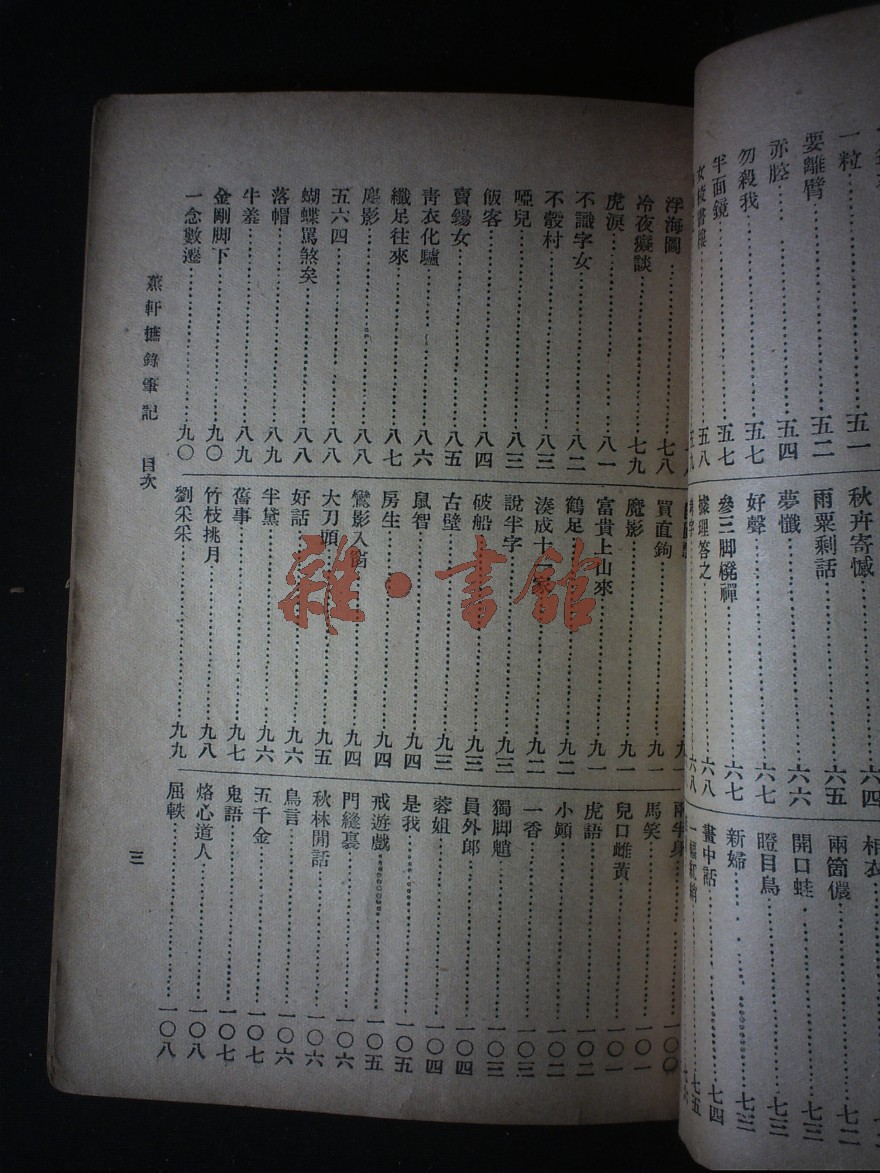 一粒
五一
要離臂
五二
赤膝
五四
勿殺我
五七
半面鏡
五七
五八
秋卉寄憾
六四
雨粟剩話
六五
夢懺
六六
好聲
六七
參三脚櫈禪
六七
據理答之
六八
兩箇儂
七二
開口蛙
七三
瞪目鳥
七三
新婦
七四
畫中話
七五
浮海圖
七八
冷夜癡談
七九
虎淚
八一
不識字女
八二
不穀村
八三
啞兒
八三
飯客
八四
賣餳女
八五
青衣化驢
八六
纖足往來
八七
塵影
八八
五六四
八八
蝴蝶罵煞矣
八八
落帽
八九
牛羞
八九
金剛脚下
九〇
一念數遷
九〇
買直鉤
九一
魔影
九一
富貴上山來
九一
鶴足
九二
湊成十一家
九二
說半字
九三
破船
九三
古壁
九三
鼠智
九四
房生
九四
鸞影入
九四
大刀頭
九五
好話
九六
半黛
九六
舊事
九七
竹枝挑月
九八
劉采采
九九
兩半身
一〇〇
馬笑
一〇一
兒口雌黃
一〇一
虎語
一〇二
小顛
一〇二
一香
一〇三
獨脚魈
一〇三
員外郎
一〇四
蓉姐
一〇四
是我
一〇五
戒遊戲
一〇五
門縫裏
一〇六
秋林閒話
一〇六
鳥言
一〇六
五千金
一〇七
鬼語
一〇七
烙心道人
一〇八
屈軼
一〇八
蕉軒摭錄筆記 目次
三
雜·書館